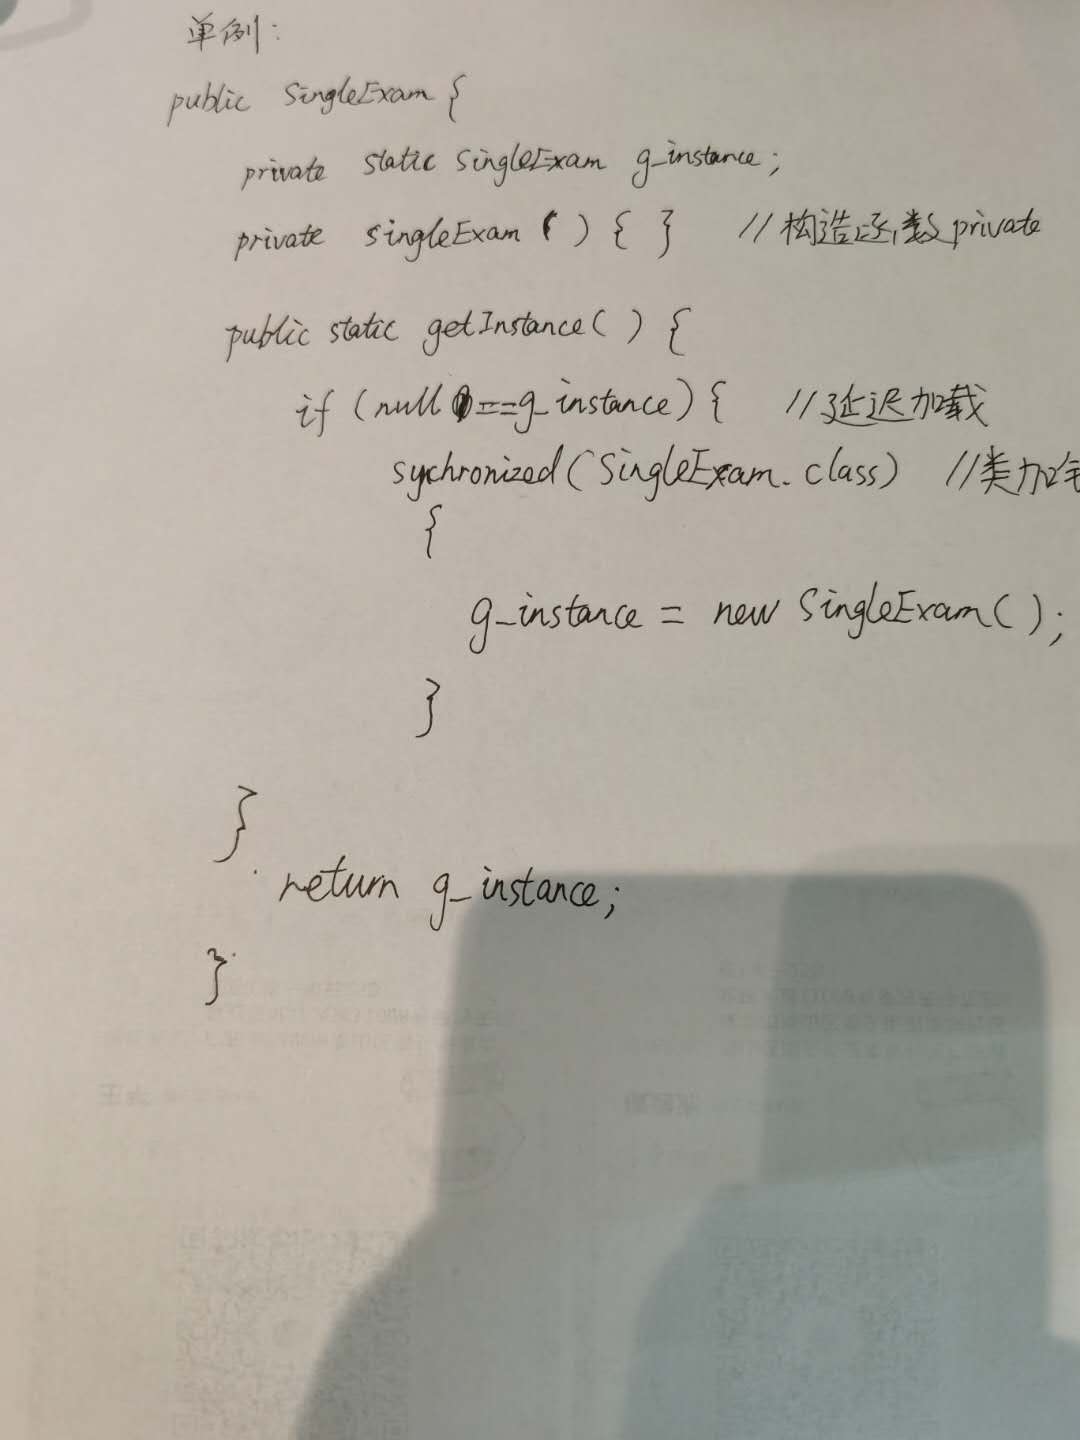 单例:
public SingleExam {
private static SingleExam g_instance;
private singleExam () { } //构造函数private
public static getInstance() {
if (null ==g_instance) { //延迟加载
sychronized(SingleExam.class) //类加
{
g_instance = new SingleExam();
}
}
return g_instance;
}